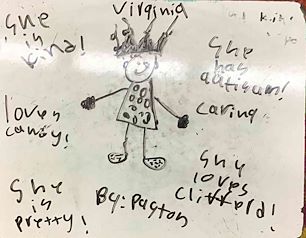 Virginia
She
is
kind!
She
has
autism!
loves
candy!
caring
She
is
pretty!
By: Payton
She
loves
Clifford!